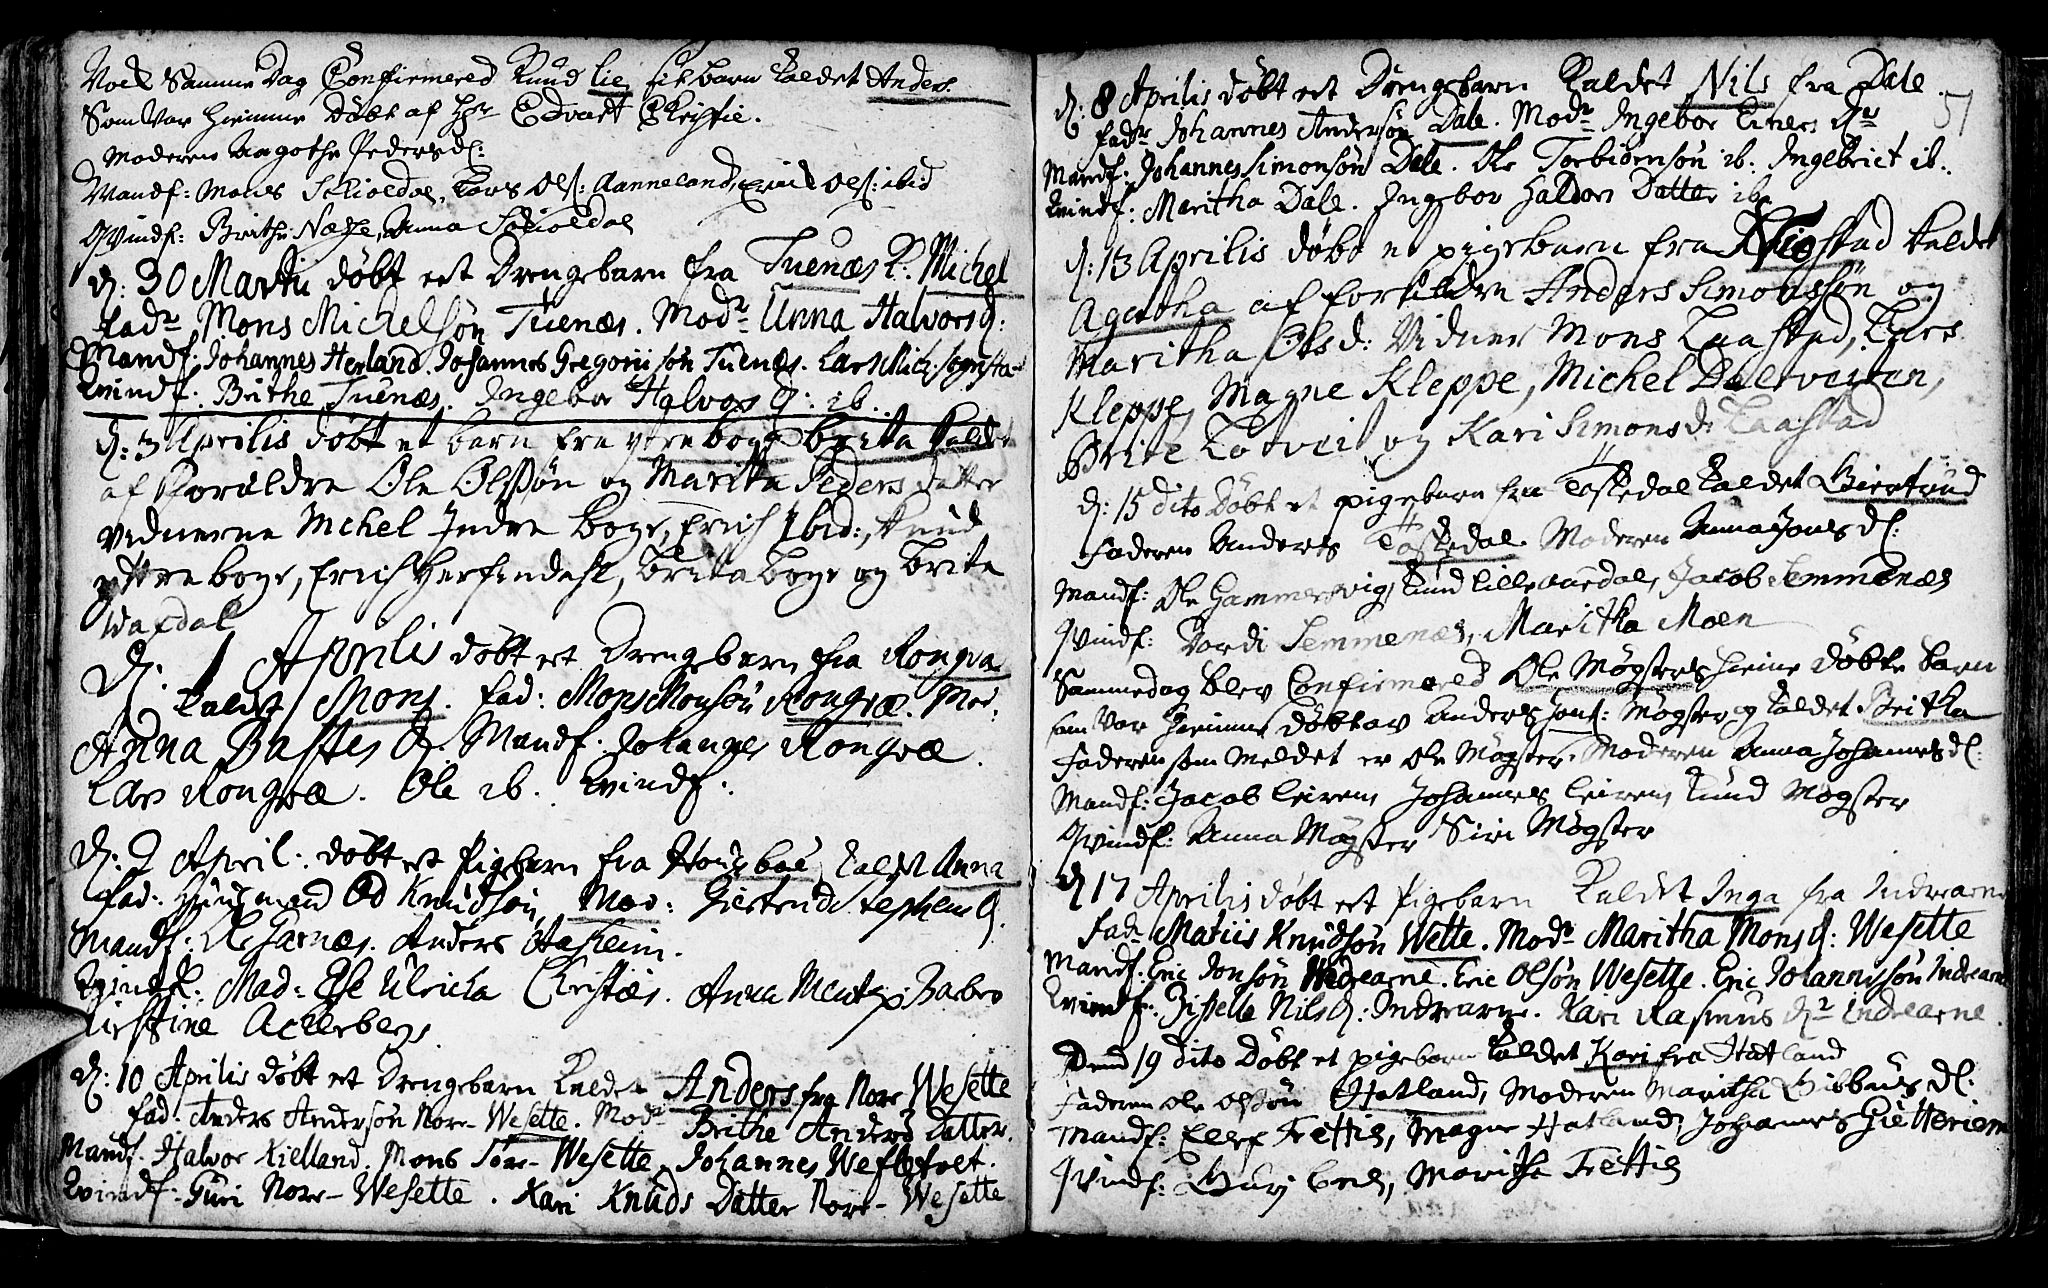 Nock Samme Dag Confirmered Knud Lie sit barn kaldet Anders
Som Var hiemme døbt af Hr Edvart Christie.
Moderen Aagothe Pedersd:
Mandf: Mons Schioldal, Lars Ols: Aanneland, Erick Ols: ibid
Qvindf: Brithe Næsse, Anna Schioldal
d: 30 Martii døbt eet Drengebarn fra Tuenæs k: Michel
fadr Mons Michelsøn Tuenæs. Modr Anna Halvorsd:
Mandf: Johannes Herland. Johannes Gregoriisøn Tuenæs. Lars Mich:
Kvindf: Brithe Tuenæs. Ingebor Halvorsd: ib.
d: 3 Aprilis døbt et barn fra ytreboge brita kaldet
af Forældre Ole Olssøn og Maritta Peders datter
vidnerne Mchel Indre boge, Erich Ibid:, Knud
yttreboge, Erich Herfindahl, brita boge og brite
Waxdal
D: 1 Aprilis døbt eet Drengebarn fra Rongvæ
kaldt Mons. fad: Mons Monsøn Rongvæ. Mod:
Anna Bastes d: Mandf. Johannes Rongvæ
Lars Rongvæ. Ole ib. Kvindf:
d: 2 April: døbt eet Pigebarn fra kaldt Anna
fad: Huusmand Od Knudsøn, Mod: Giertrud Stephens d.
Mandf: Ole Garnæs. Anders Aasheim.
Kvindf: Mad: Else Ulricha Christies. Anna Mentz: Barbro
Kirstine Ackerbergs
d: 10 Aprilis døbt eet Drengebarn kaldet Anders fra Nore Wesette
fad. Anders Andersøn Nore-Wesette. Modr Brithe Anders Datter.
Mandf. Halvor Kielland. Mons Nore-Wesette. Johannes Wefletvet.
Kvindf: Guri Nore-Wesette. Kari Knuds Datter Nore-Wesette
51
d: 8 Aprilis døbt eet Drengebarn kaldet Nils fra Dale.
fadr Johannes Andersøn Dale. Modr Ingebor Einers dr
Mandf. Johannes Simonsøn Dale. Ole Torbiørnsøn ib. Ingebrict ib.
Kvindf: Maritha Dale. Ingebor Haldors Datter ib.
d: 13 Aprilis døbt et pigebarn fra kaldet
Agatha af forældre Anders Simonssøn og
Maritha Olsd: Vidner Mons Laastad, Lars
Kleppe, Magne Kleppe, Michel Dalevejen,
Brite Totveit og Kari Simonsd: Laastad
d: 15 dito Døbt et pigebarn fra Toskedal kaldet Giertrud
Faderen Anders Toskedal. Moderen Anna Jons d:
Mandf: Ole Gammersvig, Knud Lilleaardal, Jacob Temmenæs
Qvindf: Vordi Temmenæs, Maritha Moen
Sammedag blev Confirmered Ole Møgsters hieme døbte barn
som Var hiemme døbt av Anders Jons: Møgster og kaldet Britha
Faderen som meldet er Ole Møgster. Moderen Anna Johannesd:
Mandf: Jacob Leiren, Johannes Leiren, Knud Møgster
Qvindf: Anna Møgster Siri Møgster
d 17 Aprilis døbt eet Pigebarn kaldet Inga fra Indrearne
Fadr Matiis Knudsøn Wette. Modr Maritha Monsd: Wesette
Mandf: Eric Jonsøn Indrearne. Eric Olsøn Wesette. Eric Johannissøn Indrearne
Kvindf: Gisselle Nilsd: Indrearne. Kari Rasmus dr Indrearne.
Dend 19 dito Døbt et pigebarn kaldet Kari fra Hatland
Faderen Ole Olsøn Hatland, Moderen Maritha d:
Mandf: Elef Trettis, Magne Hatland, Johannes Gietteriem
Qvindf: Guri Maritha Trettis